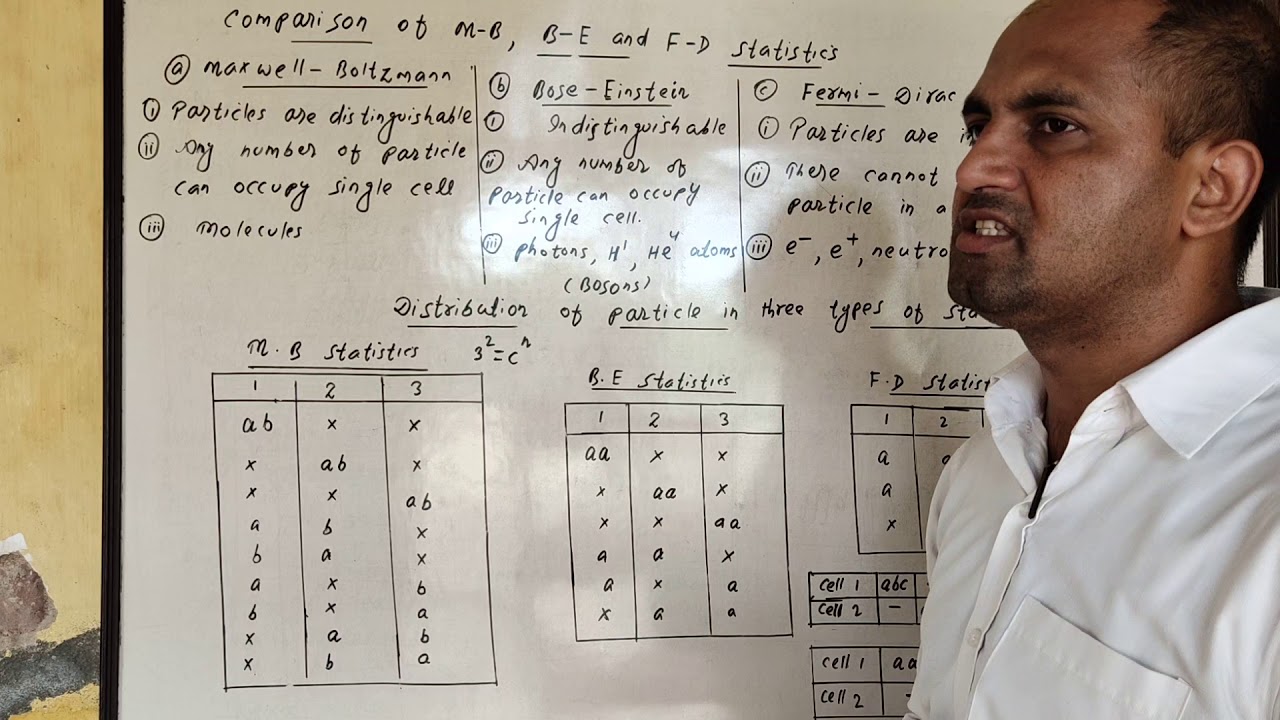 Comparison of M-B, B-E and F-D statistics
(a) Maxwell-Boltzmann
(i) Particles are distinguishable
(ii) Any number of particle
can occupy single cell
(iii) Molecules
(b) Bose-Einstein
(i) Indistinguishable
(ii) Any number of
particle can occupy
single cell.
(iii) photons, H¹, He⁴ atoms
(Bosons)
(c) Fermi-Dirac
(i) Particles are
(ii) There cannot
particle in a
(iii) e⁻, e⁺,
Distribution of particle in three types of
M.B statistics 3² = cⁿ
1 2 3
ab x x
x ab x
x x ab
a b x
b a x
a x b
b x a
x a b
x b a
B.E statistics
1 2 3
aa x x
x aa x
x x aa
a a x
a x a
x a a
F.D
1 2
a
a
x
cell 1 abc
cell 2 –
cell 1
cell 2